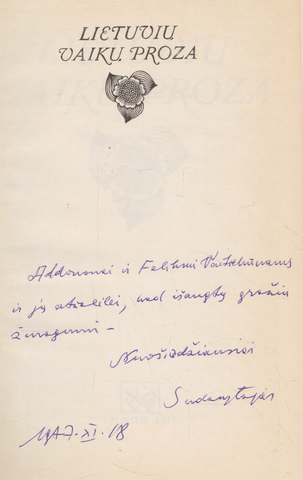 LIETUVIŲ
VAIKŲ PROZA
Aldonomei ir Feliksui Vaitiekūnams
ir jų atžalėlei, kad išaugtų gražiu
žmogumi –
Nuoširdžiausiai
Sudarytojas
XI. 18